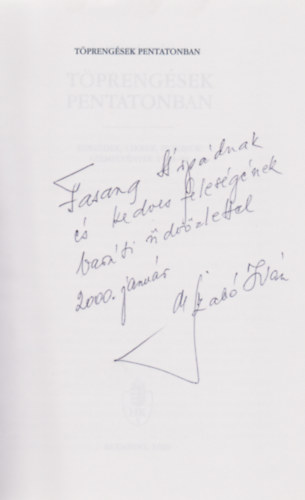 TÖPRENGÉSEK PENTATONBAN
TÖPRENGÉSEK
PENTATONBAN
Fasang Árpádnak
és kedves feleségének
baráti üdvözlettel
2000. január
Szabó Iván